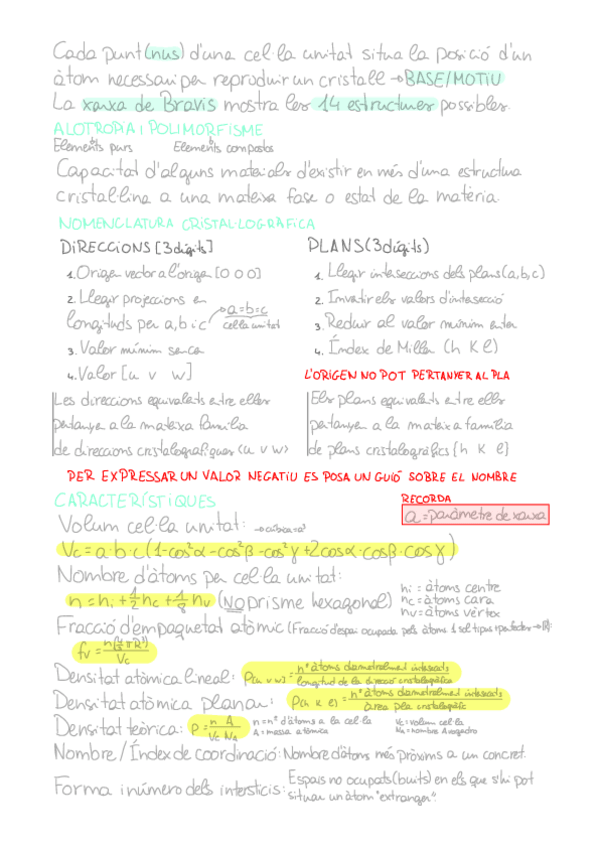 Cada punt (nus) d'una cel·la unitat situa la posició d'un
àtom necessari per reproduir un cristall → BASE/MOTIU
La xarxa de Bravis mostra les 14 estructures possibles.
ALOTROPIA i POLIMORFISME
Elements purs Elements compostos
Capacitat d'alguns materials d'existir en més d'una estructura
cristal·lina a una mateixa fase o estat de la matèria.
NOMENCLATURA CRISTAL·LOGRÀFICA
DIRECCIONS [3 dígits]
1. Origen vector a l'origen [0 0 0]
2. Llegir projeccions en
longituds per a, b i c → a=b=c
cel·la unitat
3. Valor mínim sencer
4. Valor [u v w]
Les direccions equivalents entre elles
pertanyen a la mateixa família
de direccions cristalogràfiques ⟨u v w⟩
PLANS (3 dígits)
1. Llegir interseccions dels plans (a, b, c)
2. Invertir els valors d'intersecció
3. Reduir al valor mínim enter
4. Índex de Miller (h k l)
L'ORIGEN NO POT PERTANYER AL PLA
Els plans equivalents entre ells
pertanyen a la mateixa família
de plans cristalogràfics {h k l}
PER EXPRESSAR UN VALOR NEGATIU ES POSA UN GUIÓ SOBRE EL NOMBRE
CARACTERÍSTIQUES
RECORDA
a = paràmetre de xarxa
Volum cel·la unitat: → cúbica = a³
Vc = a·b·c (1-cos²α-cos²β-cos²γ+2cosα·cosβ·cosγ)
Nombre d'àtoms per cel·la unitat:
n = ni + 1/2 nc + 1/8 nv (NO prisme hexagonal)
ni = àtoms centre
nc = àtoms cara
nv = àtoms vèrtex
Fracció d'empaquetat atòmic (Fracció d'espai ocupada pels àtoms
fv = n(4/3 π R³)/Vc
Densitat atòmica lineal: ρ[u v w] = nº àtoms diametralment intersecats / longitud de la direcció cristalogràfica
Densitat atòmica planar: ρ(h k l) = nº àtoms diametralment intersecats / àrea pla cristalogràfic
Densitat teòrica: ρ = n A / Vc NA n = nº d'àtoms a la cel·la Vc = volum cel·la
A = massa atòmica NA = nombre Avogadro
Nombre / Índex de coordinació: Nombre d'àtoms més pròxims a un concret.
Forma i número dels intersticis: Espais no ocupats (buits) en els que s'hi pot
situar un àtom "extranger".